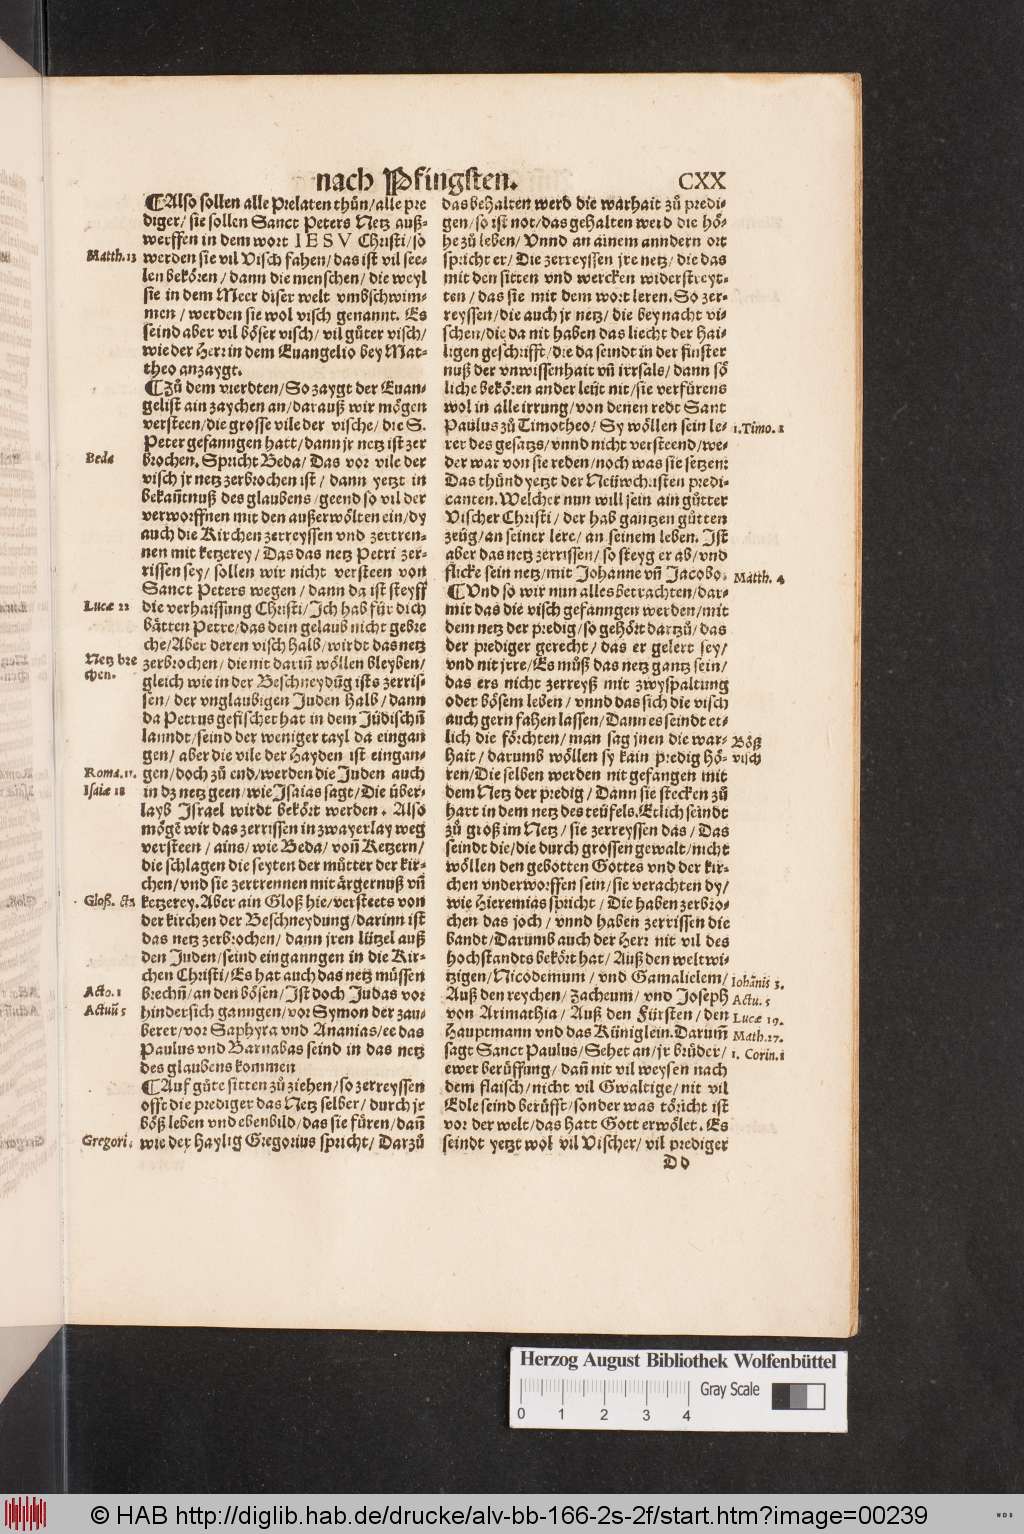 nach Pfingsten. CXX
¶Also sollen alle Prelaten thůn/alle pre
diger/ sie sollen Sanct Peters Netz auß-
werffen in dem wort IESV Christi/so
Matth.13
werden sie vil Visch fahen/das ist vil see-
len bekören/ dann die menschen/ die weyl
sie in dem Meer diser welt vmbschwim-
men / werden sie wol visch genannt. Es
seind aber vil böser visch/ vil gůter visch/
wie der Herr in dem Euangelio bey Mat-
theo anzaygt.
¶Zů dem vierdten/So zaygt der Euan-
gelist ain zaychen an/darauß wir mögen
versteen/die grosse vile der vische/ die S.
Peter gefanngen hatt/dann jr netz ist zer
Beda
brochen. Spricht Beda/ Das vor vile der
visch jr netz zerbrochen ist/ dann yetzt in
bekañtnuß des glaubens/geend so vil der
verworffnen mit den außerwölten ein/dy
auch die Kirchen zerreyssen vnd zertren-
nen mit ketzerey/ Das das netz Petri zer-
rissen sey/ sollen wir nicht versteen von
Sanct Peters wegen/ dann da ist steyff
Lucæ 22
die verhaissung Christi/Ich hab für dich
bätten Petre/das dein gelaub nicht gebre
che/Aber deren visch halb/wirdt das netz
Netz bre
chen.
zerbrochen/die nit dariñ wöllen bleyben/
gleich wie in der Beschneydũg ists zerris-
sen/ der vnglaubigen Juden halb/ dann
da Petrus gefischet hat in dem Jüdischñ
lanndt/seind der weniger tayl da eingan
gen/ aber die vile der Hayden ist eingan-
Roma.11.
gen/doch zů end/werden die Juden auch
Isaiæ 18
in dz netz geen/wie Isaias sagt/Die über-
layb Israel wirdt bekört werden. Also
mögẽ wir das zerrissen in zwayerlay weg
versteen / ains/ wie Beda/ voñ Ketzern/
die schlagen die seyten der můtter der kir-
chen/vnd sie zertrennen mit ärgernuß vñ
Gloß. ct3
ketzerey.Aber ain Gloß hie/versteets von
der kirchen der Beschneydung/darinn ist
das netz zerbrochen/ dann jren lützel auß
den Juden/seind einganngen in die Kir-
chen Christi/Es hat auch das netz müssen
Acto.1
brechñ/an den bösen/Ist doch Judas vor
Actuũ 5
hindersich ganngen/vor Symon der zau-
berer/vor Saphyra vnd Ananias/ee das
Paulus vnd Barnabas seind in das netz
des glaubens kommen
¶Auf gůte sitten zů ziehen/so zerreyssen
offt die prediger das Netz selber/ durch jr
böß leben vnd ebenbild/das sie füren/dañ
Gregori.
wie der haylig Gregorius spricht/ Darzů
das behalten werd die warhait zů predi-
gen/so ist not/das gehalten werd die hö-
he zů leben/ Vnnd an ainem anndern ort
spricht er/ Die zerreyssen jre netz/ die das
mit den sitten vnd wercken widerstreyt-
ten / das sie mit dem wort leren. So zer-
reyssen/die auch jr netz/ die bey nacht vi-
schen/die da nit haben das liecht der hai-
ligen geschrifft/die da seindt in der finster
nuß der vnwissenhait vñ irrsals/ dann sö
liche bekören ander leüt nit/sie verfürens
wol in alle irrung/von denen redt Sant
Paulus zů Timotheo/ Sy wöllen sein le-
1.Timo. 1
rer des gesatzs/vnnd nicht versteend/we-
der war von sie reden/noch was sie setzen:
Das thůnd yetzt der Neüwchristen predi-
canten.Welcher nun will sein ain gůtter
Vischer Christi/ der hab gantzen gůtten
zeüg/an seiner lere/an seinem leben. Ist
aber das netz zerrissen/so steyg er ab/vnd
flicke sein netz/mit Johanne vñ Jacobo.
Matth. 4
¶Vnd so wir nun alles betrachten/dar-
mit das die visch gefanngen werden/mit
dem netz der predig/so gehört dartzů/das
der prediger gerecht/ das er gelert sey/
vnd nit jrre/Es můß das netz gantz sein/
das ers nicht zerreyß mit zwyspaltung
oder bösem leben/ vnnd das sich die visch
auch gern fahen lassen/Dann es seindt et-
lich die förchten/man sag jnen die war-
Böß
visch
hait/ darumb wöllen sy kain predig hö-
ren/Die selben werden nit gefangen mit
dem Netz der predig/ Dann sie stecken zů
hart in dem netz des teüfels.Etlich seindt
zů groß im Netz/ sie zerreyssen das/ Das
seindt die/die durch grossen gewalt/nicht
wöllen den gebotten Gottes vnd der kir-
chen vnderworffen sein/sie verachten dy/
wie Hieremias spricht/ Die haben zerbro-
chen das joch/ vnnd haben zerrissen die
bandt/Darumb auch der Herr nit vil des
hochstandts bekört hat/ Auß den weltwi-
tzigen/Nicodemum/ vnd Gamalielem/
Iohãnis 3.
Auß den reychen/ Zacheum/ vnd Joseph
Actu. 5
von Arimathia/ Auß den Fürsten/den
Lucæ 19.
Hauptmann vnd das Küniglein.Darum̃
Math.27.
sagt Sanct Paulus/Sehet an/jr brüder/
1. Corin.1
ewer berüffung/ dañ nit vil weysen nach
dem flaisch/nicht vil Gwaltige/nit vil
Edle seind berüfft/sonder was töricht ist
vor der welt/das hatt Gott erwölet. Es
seindt yetzt wol vil Vischer/ vil prediger
Dd
Herzog August Bibliothek Wolfenbüttel
Gray Scale
0 1 2 3 4
© HAB http://diglib.hab.de/drucke/alv-bb-166-2s-2f/start.htm?image=00239